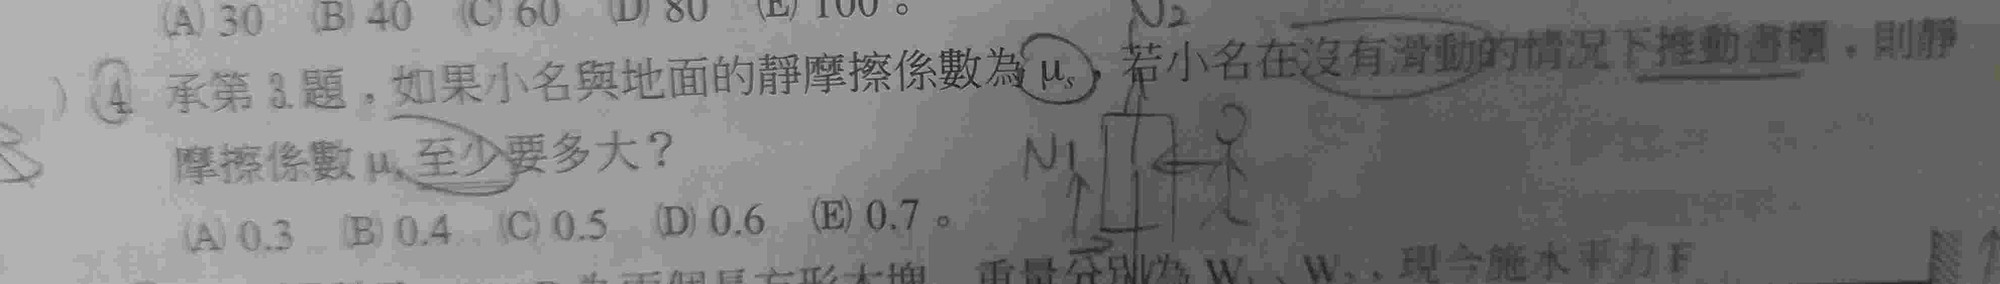 (A) 30 (B) 40 (C) 60 (D) 80 (E) 100。
N2
) 4 承第 3. 題,如果小名與地面的靜摩擦係數為 μs,若小名在沒有滑動的情況下推動書櫃,則靜
摩擦係數 μs 至少要多大?
N1
(A) 0.3 (B) 0.4 (C) 0.5 (D) 0.6 (E) 0.7。
為兩個長方形木塊 重量分別為 W、W,現今施水平力 F